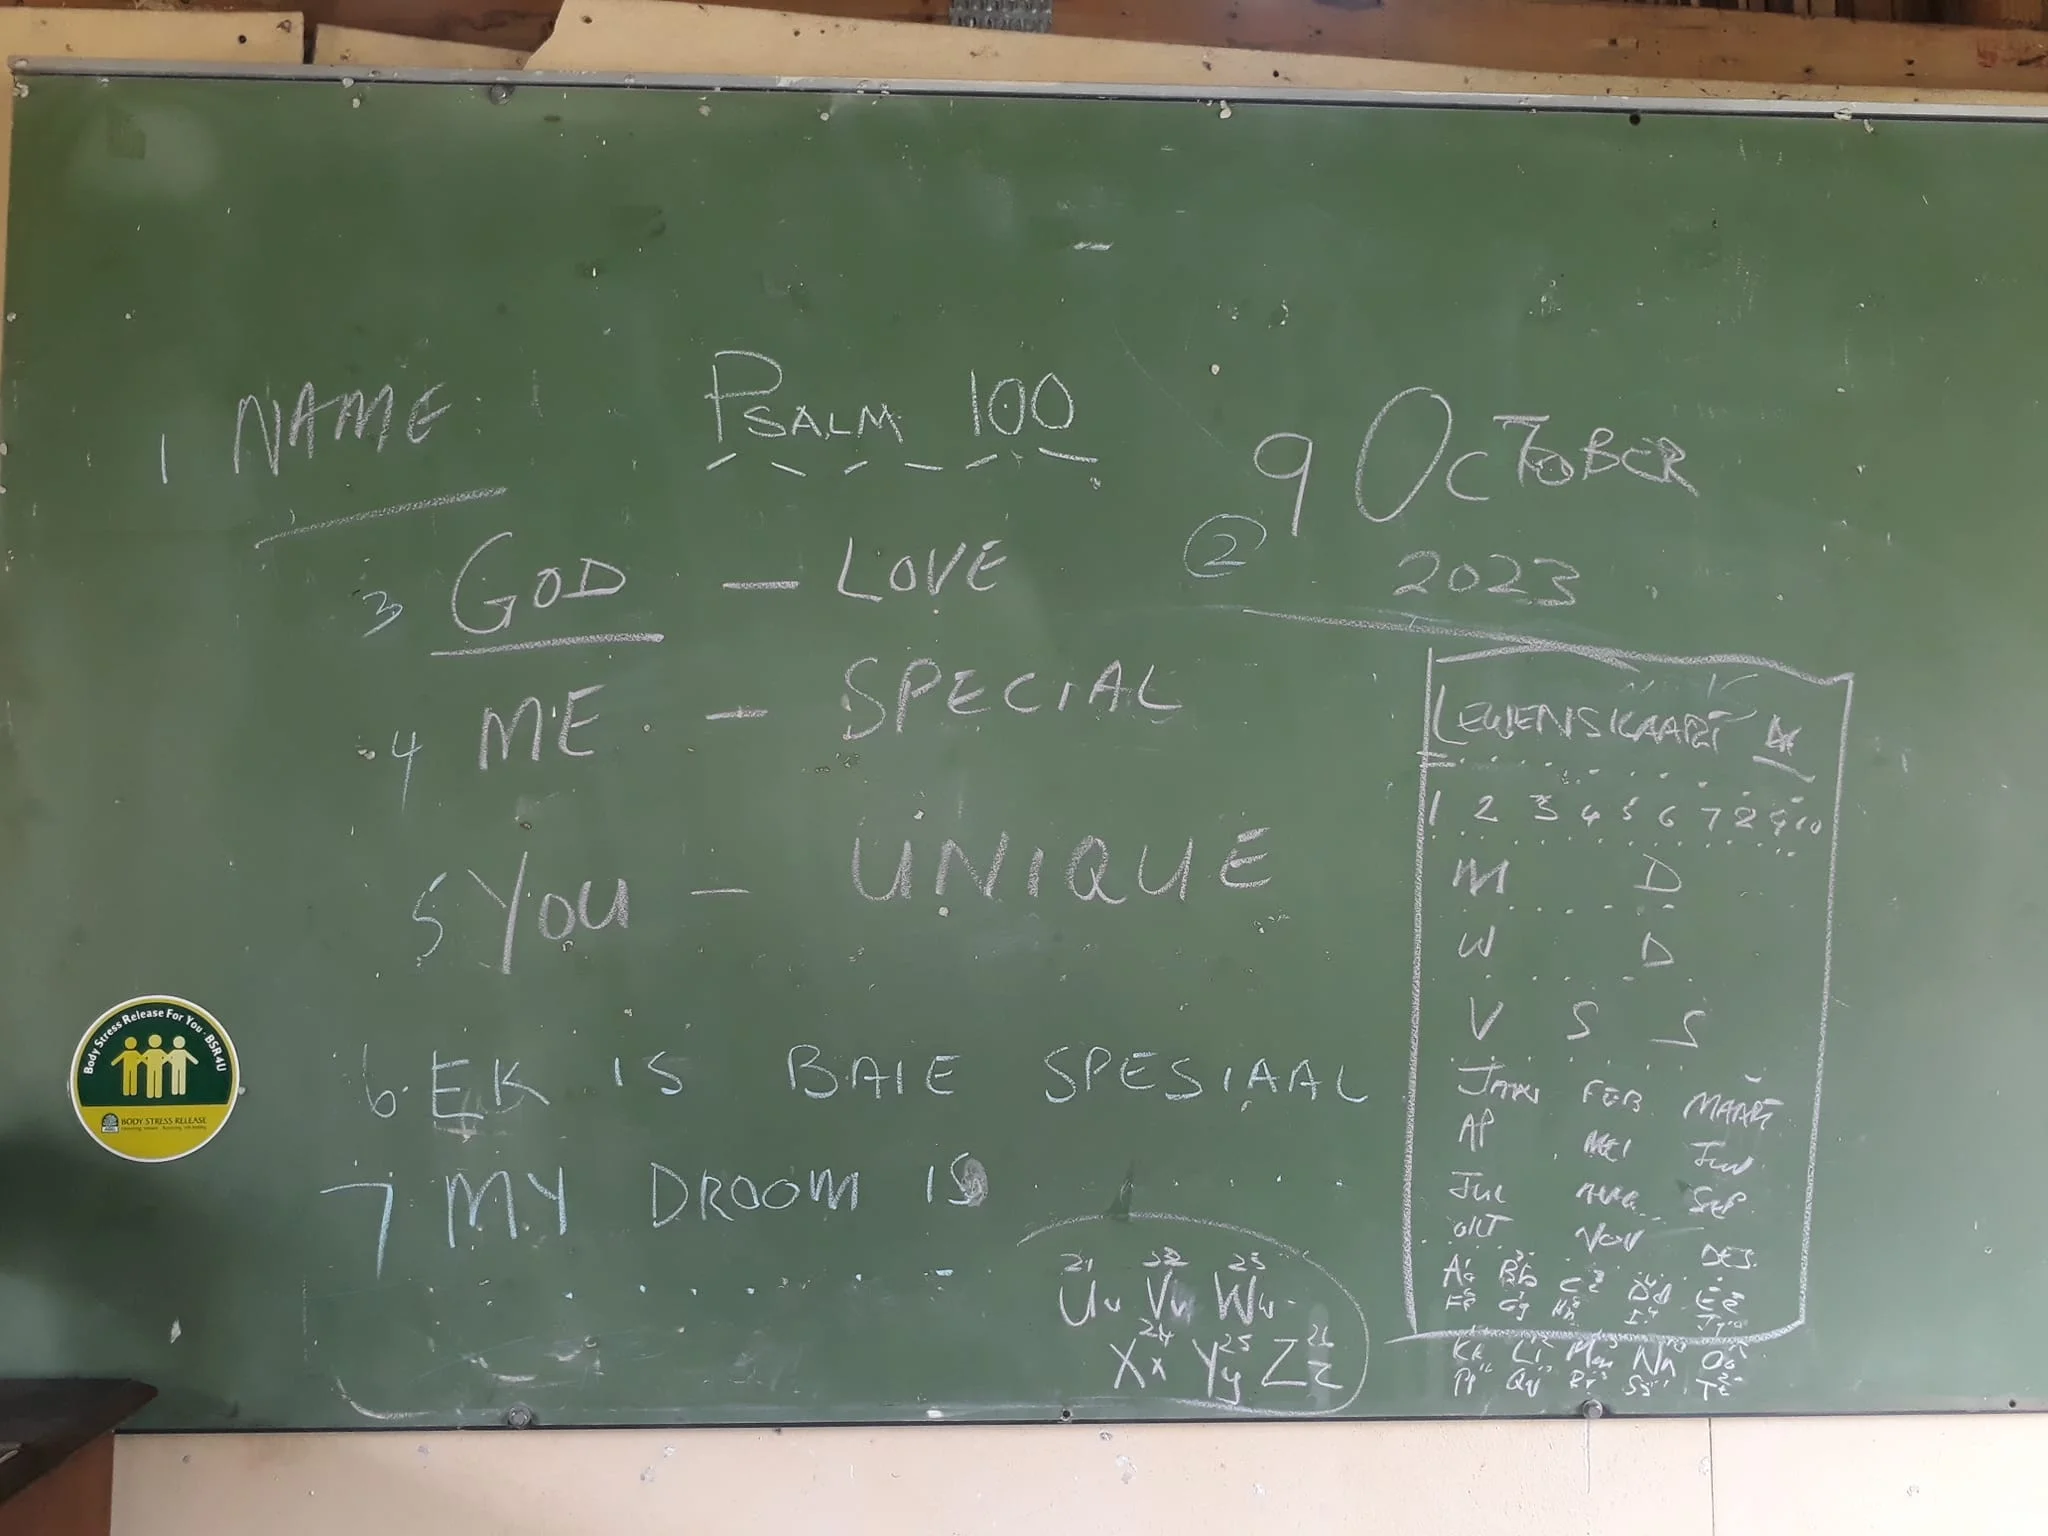 1 NAME
PSALM 100
9 OCTOBER
② 2023
3 GOD — LOVE
4 ME — SPECIAL
5 YOU — UNIQUE
6. EK IS BAIE SPESIAAL
7 MY DROOM IS
21 22 23
Uu Vv Ww
24 25 26
Xx Yy Zz
LEWENSKAART
1 2 3 4 5 6 7 8 9 10
M D
W D
V S S
JAN FEB MAART
AP MEI JUN
JUL AUG SEP
OKT NOV DES.
Aa Bb Cc Dd Ee
Ff Gg Hh Ii Jj
Kk Ll Mm Nn Oo
Pp Qq Rr Ss Tt
Body Stress Release For You - BSR4U
BODY STRESS RELEASE